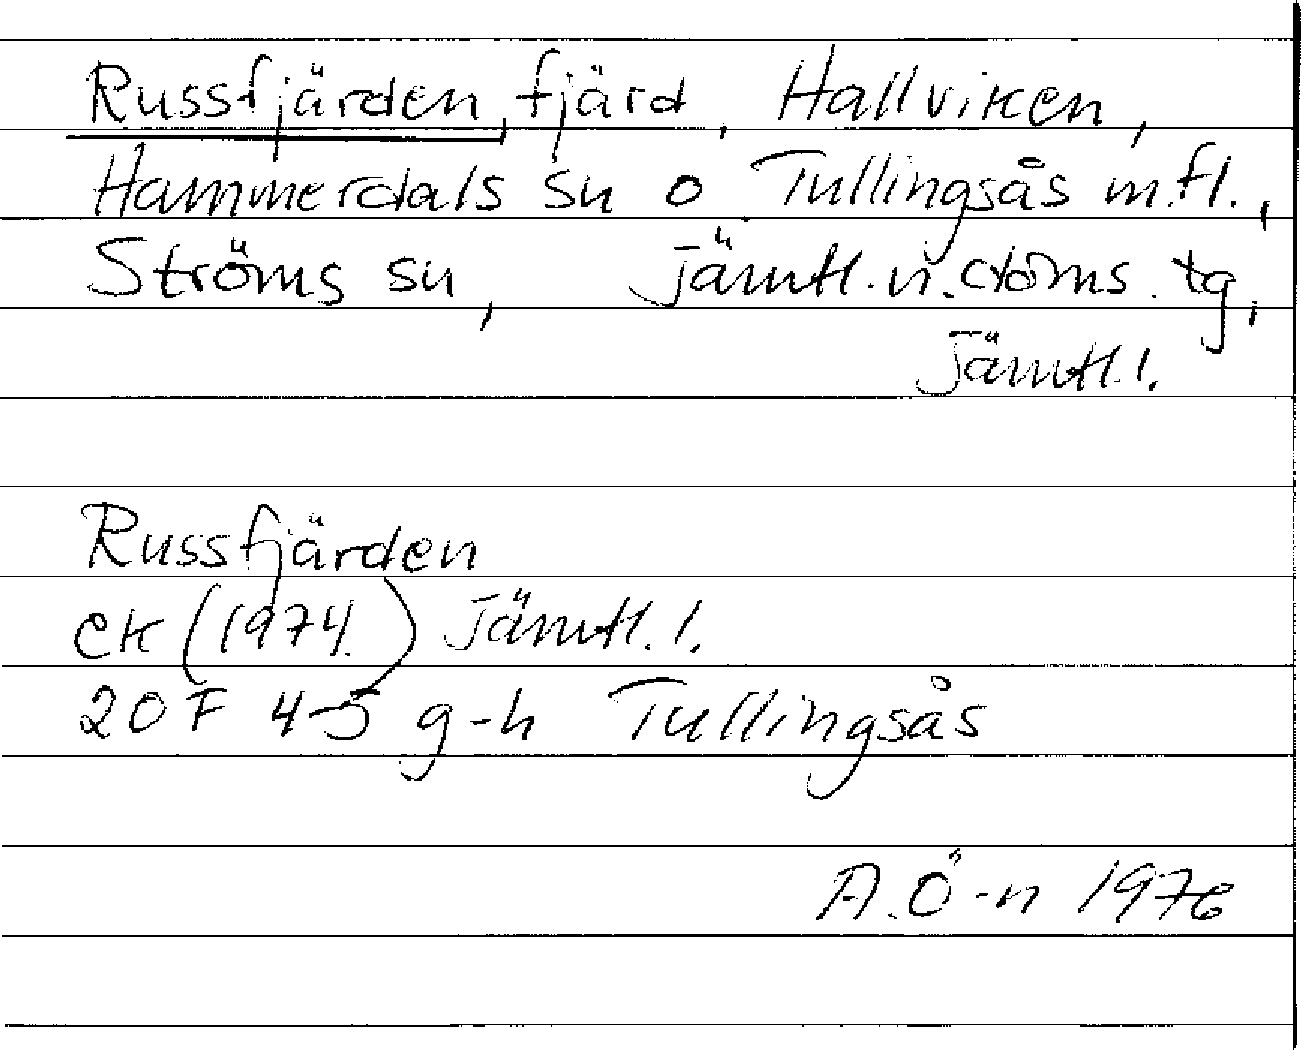 Russfjärden, fjärd, Hallviken,
Hammerdals sn o Tullingsås m.fl.,
Ströms sn, Jämtl. n. doms. tg,
Jämtl. l.
Russfjärden
ek (1974) Jämtl. l.
20F 4-5 g-h Tullingsås
A.Ö-n 1976